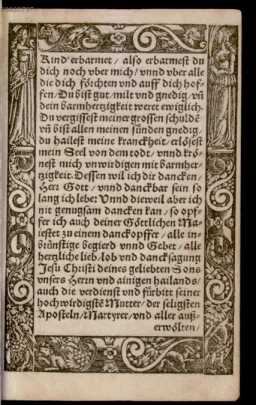 Kind erbarmet / also erbarmest du
dich noch vber mich / vnnd vber alle
die dich förchten vnd auff dich hof-
fen / Du bist gut / milt vnd gnedig / vñ
dein barmhertzigkeit weret ewiglich.
Du vergissest meiner grossen schuldẽ
vñ bist allen meinen sünden gnedig /
du hailest meine kranckheit / erlösest
mein Seel von dem todt / vnnd krö-
nest mich vnwirdigen mit barmher-
tzigkeit. Dessen will ich dir dancken /
Herr Gott / vnnd danckbar sein so
lang ich lebe: Vnnd dieweil aber ich
nit genugsam dancken kan / so opf-
fer ich auch deiner Göttlichen Ma-
iestet zu einem danckopffer / alle in-
brünstige begierd vnnd Gebet / alle
hertzliche lieb / lob vnd dancksagung
Jesu Christi deines geliebten Sons
vnsers Herrn vnd ainigen hailands /
auch die verdienst vnd fürbitt seiner
hochwirdigstẽ Mutter / der seligsten
Aposteln / Martyrer / vnd aller auß-
erwölten /